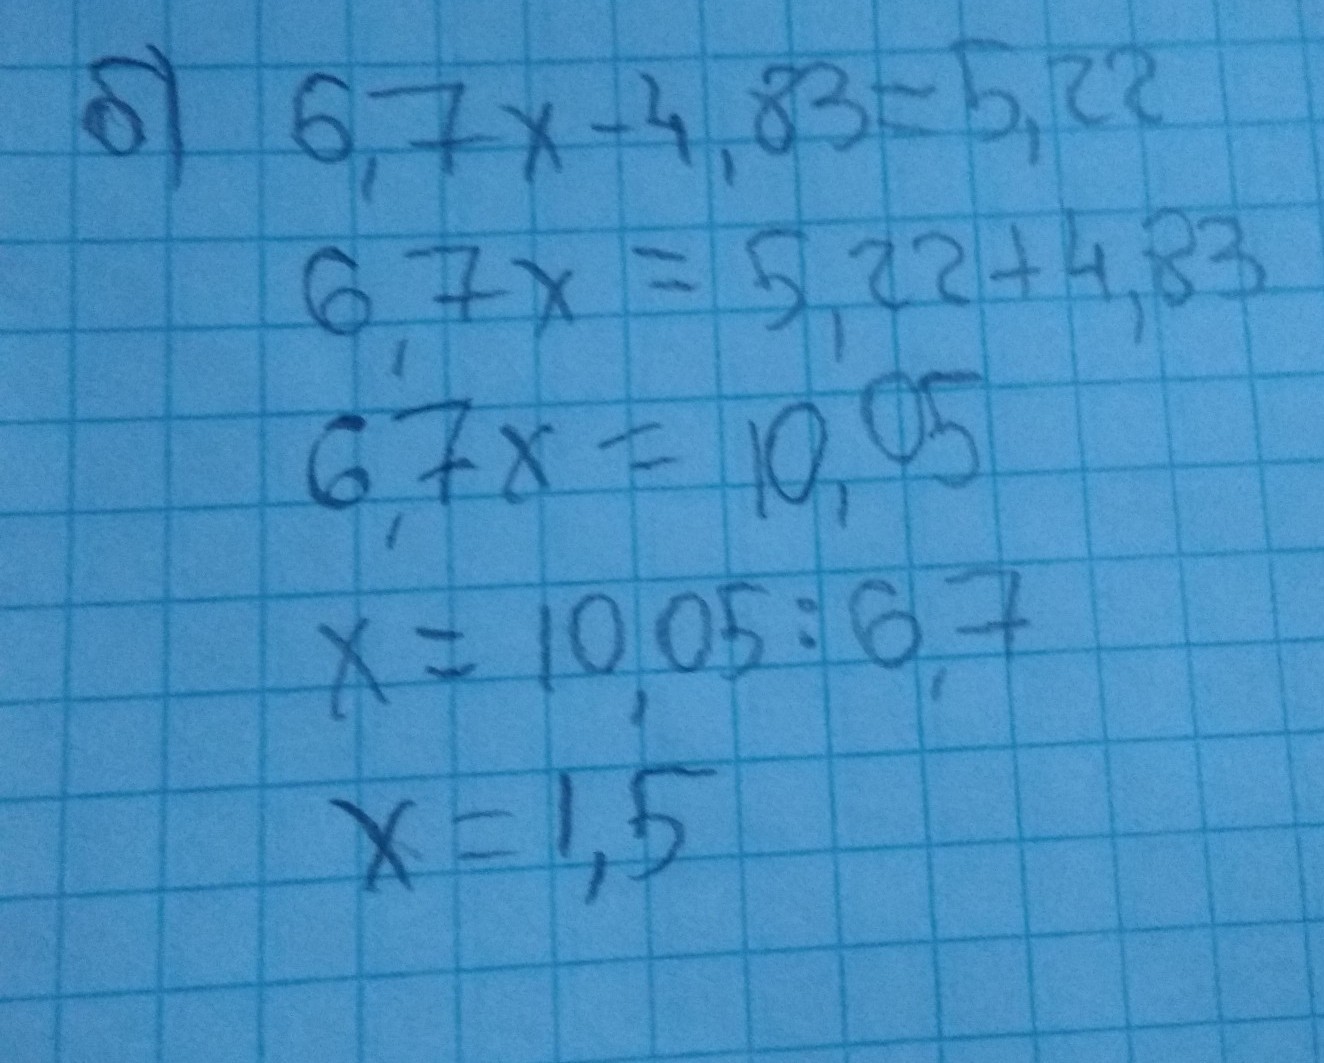 б) 6,7x-4,83=5,22
6,7x=5,22+4,83
6,7x=10,05
x=10,05:6,7
x=1,5